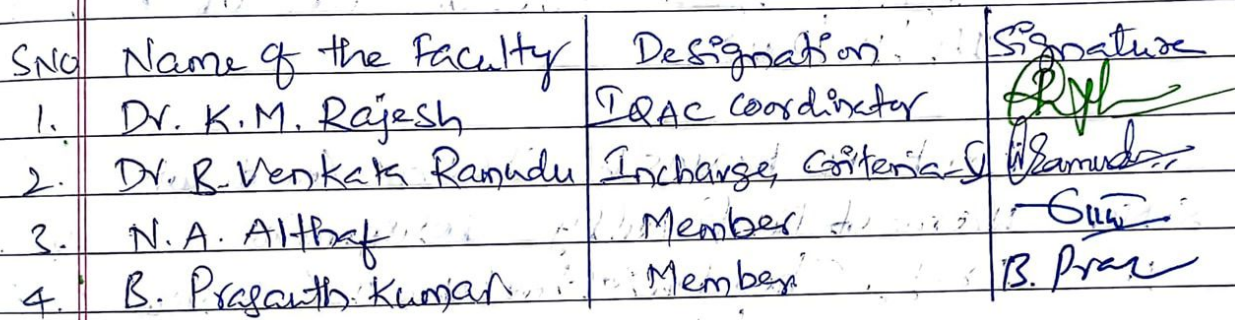 SNO Name of the Faculty Designation Signature
1. Dr. K.M. Rajesh IQAC Coordinator
2. Dr. B. Venkata Ramudu Incharge, Criteria-I
3. N.A. Althaf Member
4. B. Prasanth Kumar Member B.